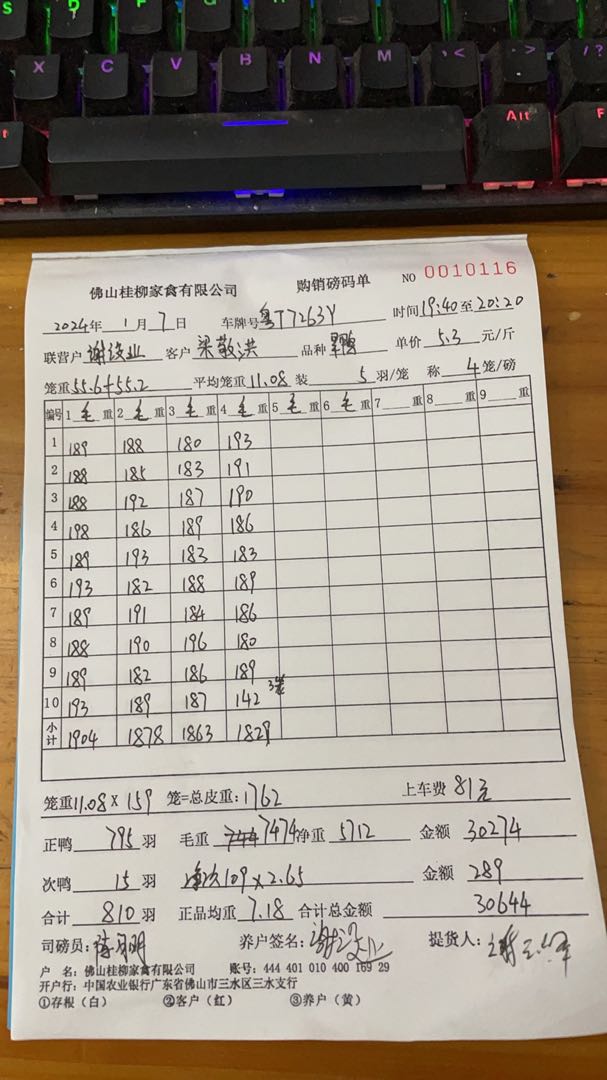 S D F G H J
X C V B N M , < . > / ?
t Alt F
佛山桂柳家禽有限公司 购销磅码单 NO 0010116
2024年 1月 7日 车牌号粤T7263Y 时间19:40至20:20
联营户 谢 业 客户 梁敬洪 品种 单价 5.3 元/斤
笼重55.6+55.2 平均笼重11.08 装 5 羽/笼 称 4 笼/磅
编号 1毛重 2毛重 3毛重 4毛重 5毛重 6毛重 7 重 8 重 9 重
1 189 188 180 193
2 188 185 183 191
3 188 192 187 190
4 198 186 189 186
5 189 193 183 183
6 193 182 188 189
7 189 191 184 186
8 188 190 196 180
9 189 182 186 189
10 193 189 187 142 3笼
小计 1904 1878 1863 1829
笼重11.08 × 159 笼=总皮重:1762 上车费 81元
正鸭 795 羽 毛重 7474 净重 5712 金额 30274
次鸭 15 羽 109 × 2.65 金额 289
合计 810 羽 正品均重 7.18 合计总金额 30644
司磅员: 养户签名: 提货人:
户 名:佛山桂柳家禽有限公司 账号:444 401 010 400 169 29
开户行:中国农业银行广东省佛山市三水区三水支行
①存根(白) ②客户(红) ③养户(黄)